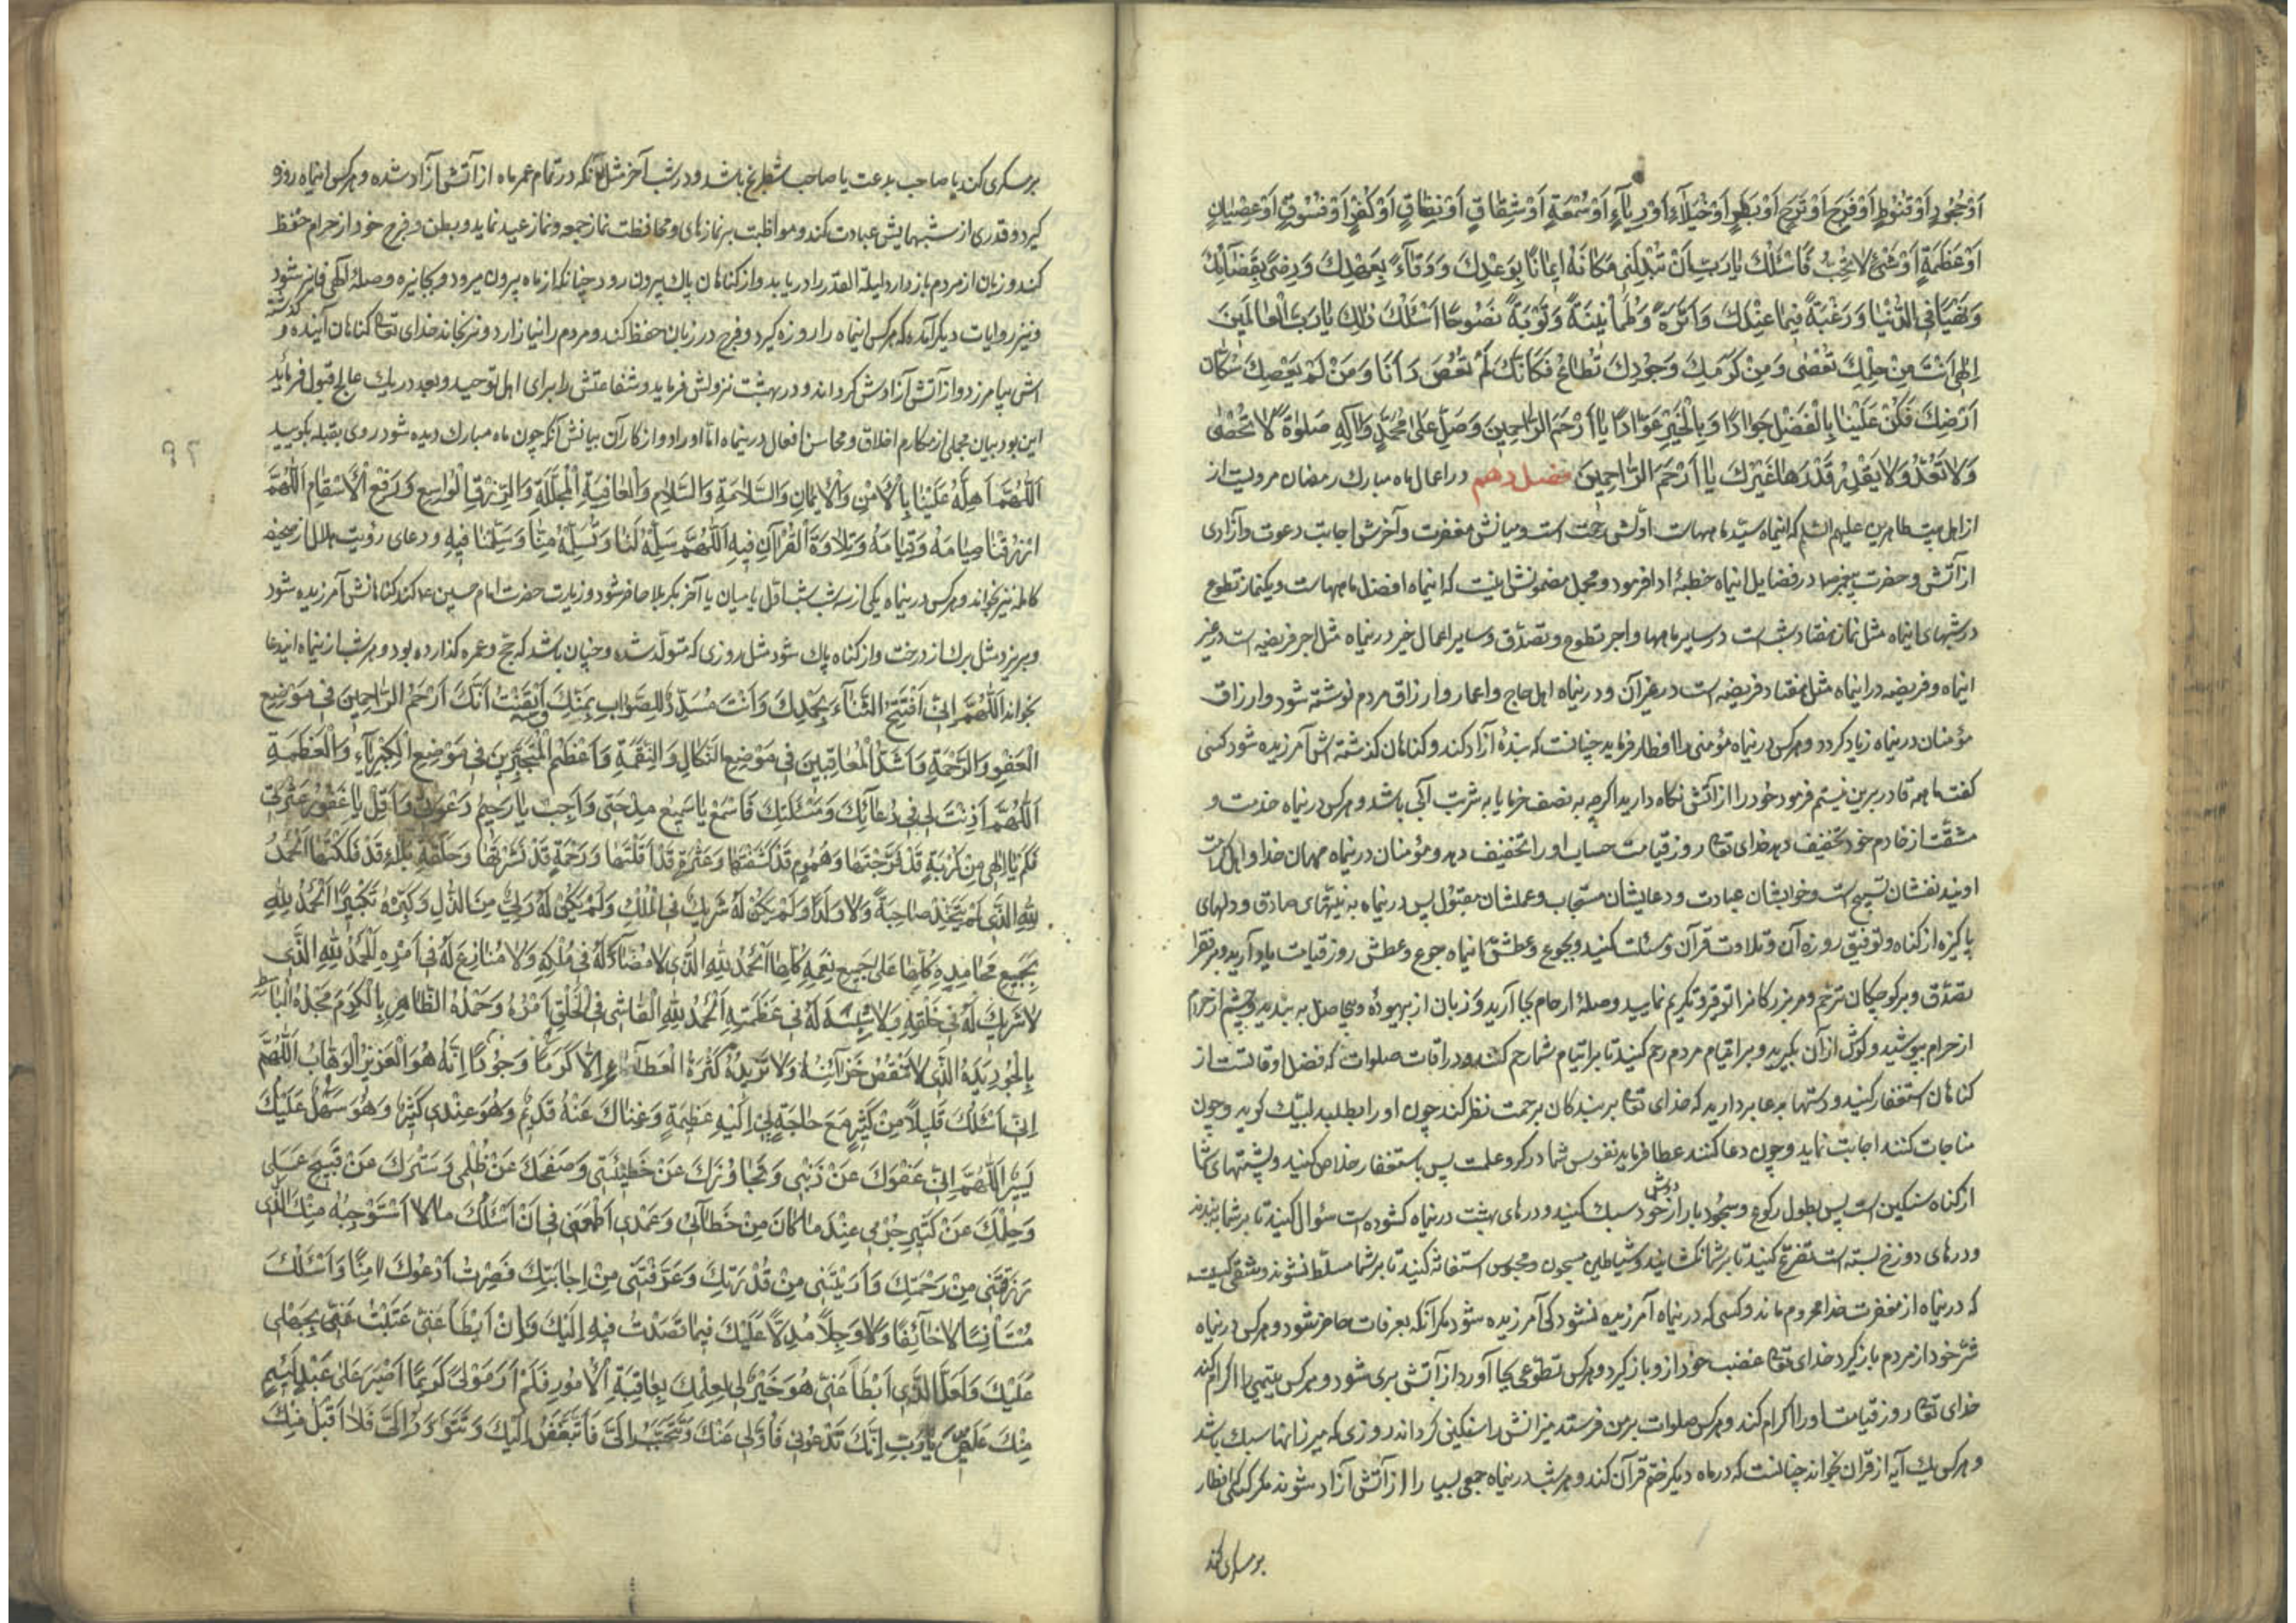 اَوْ جُحُودٍ اَوْ قُنُوطٍ اَوْ فَرَحٍ اَوْ تَرَحٍ اَوْ بَطَرٍ اَوْ خُيَلَآءَ اَوْ رِيَآءٍ اَوْ سُمْعَةٍ اَوْ شِقَاقٍ اَوْ نِفَاقٍ اَوْ كُفْرٍ اَوْ فُسُوقٍ اَوْ عِصْيَانٍ
اَوْ عَظَمَةٍ اَوْ شَىْءٍ لَا تُحِبُّ فَاَسْئَلُكَ يَا رَبِّ اَنْ تُبَدِّلَنِى مَكَانَهُ اِيمَانًا بِوَعْدِكَ وَ وَفَآءً بِعَهْدِكَ وَ رِضًى بِقَضَآئِكَ
وَ زُهْدًا فِى الدُّنْيَا وَ رَغْبَةً فِيمَا عِنْدَكَ وَ اَثَرَةً وَ طُمَأْنِينَةً وَ تَوْبَةً نَصُوحًا اَسْئَلُكَ ذٰلِكَ يَا رَبَّ الْعَالَمِينَ
اِلٰهِى اَنْتَ مِنْ حِلْمِكَ تُعْصٰى وَ مِنْ كَرَمِكَ وَ جُودِكَ تُطَاعُ فَكَاَنَّكَ لَمْ تُعْصَ وَ اَنَا وَ مَنْ لَمْ يَعْصِكَ سُكَّانُ
اَرْضِكَ فَكُنْ عَلَيْنَا بِالْفَضْلِ جَوَادًا وَ بِالْخَيْرِ عَوَّادًا يَا اَرْحَمَ الرَّاحِمِينَ وَ صَلِّ عَلٰى مُحَمَّدٍ وَ اٰلِهِ صَلٰوةً لَا تُحْصٰى
وَ لَا تُعَدُّ وَ لَا يَقْدِرُ قَدْرَهَا غَيْرُكَ يَا اَرْحَمَ الرَّاحِمِينَ فصل دهم در اعمال ماه مبارك رمضان مرويست از
از اهل بيت طاهرين عليهم السلم كه اينماه سيّد ماههاست اوّلش رحمت است و ميانش مغفرت و آخرش اجابت دعوت و آزادى
از آتش و حضرت پيغمبر ص در فضايل اينماه خطبهٔ ادا فرمود و مجمل مضمونش اينست كه اينماه افضل ماههاست و يكنماز تطوع
در شبهاى اينماه مثل نماز هفتاد شب است در ساير ماهها و اجر تطوع و تصدّق و ساير اعمال خير در ينماه مثل اجر فريضه است در غير
اينماه و فريضه در اينماه مثل هفتاد فريضه است در غير آن و در ينماه اهل حاج و اعمار و ارزاق مردم نوشته شود و ارزاق
مؤمنان در ينماه زياد كردد و هركس در ينماه مؤمنى را افطار فرمايد چنانست كه بندهٔ آزاد كند و كناهان كذشته اش آمرزيده شود كسى
كفت ما همه قادر برين نيستم فرمود خود را از آتش نكاه داريد اكرچه به نصف خرما يا به شربت آبى باشد و هركس در ينماه خدمت و
مشقّت از خادم خود تخفيف دهد خداى تع روز قيامت حساب او را تخفيف دهد و مؤمنان در ينماه مهمان خدا و اهل كرامت
اويند نفسشان تسبيح است و خوابشان عبادت و دعايشان مستجاب و عملشان مقبول پس در ينماه به نيّتهاى صادق و دلهاى
پاكيزه از كناه و توفيق روزهٔ آن و تلاوت قرآن مسئلت كنيد و بجوع و عطش اينماه جوع و عطش روز قيامت ياد آريد و بر فقرا
تصدّق و بر كوچكان ترحّم و بر بزركان را توقير و تكريم نماييد و صلهٔ ارحام بجا آريد و زبان از بيهوده و بيحاصل به بنديد و چشم از حرام
از حرام بپوشيد و كوش از آن بكيريد و بر ايتام مردم رحم كنيد تا بر ايتام شما رحم كنند و در اوقات صلوات كه افضل اوقاتست از
كناهان استغفار كنيد و دستها بدعا برداريد كه خداى تع بر بندكان برحمت نظر كند چون او را بطلبند لبّيك كويد و چون
مناجات كنند اجابت نمايد و چون دعا كنند عطا فرمايد نفوس شما در كرو عملست پس باستغفار خلاص كنيد و پشتهاى شما
از كناه سنكين است پس بطول ركوع و سجود بار از دوش خود سبك كنيد و درهاى بهشت در ينماه كشوده است سئوال كنيد تا بر شما نبندند
و درهاى دوزخ بسته است تضرّع كنيد تا بر شما نكشايند و شياطين مسجون و محبوس استغاثه كنيد تا بر شما مسلّط نشوند و شقى كسيست
كه در ينماه از مغفرت خدا محروم ماند و كسى كه در ينماه آمرزيده نشود كى آمرزيده شود مكر آنكه بعرفات حاضر شود و هركس در ينماه
شرّ خود از مردم باز كيرد خداى تع غضب خود از و باز كيرد و هركس تطوّعى بجا آورد از آتش برى شود و هركس يتيمى را اكرام كند
خداى تع روز قيامت او را اكرام كند و هركس صلوات بر من فرستد ميزانش را سنكين كرداند روزى كه ميزانها سبك باشد
و هركس يك آيه از قرآن بخواند چنانست كه در ماه ديكر ختم قرآن كند و هر شب در ينماه جمعى بسيار را از آتش آزاد شوند مكر كسى كه افطار
بر مسكرى كند
بر مسكرى كند يا صاحب بدعت يا صاحب شطرنج باشد و در شب آخر مثل آنكه در تمام عمر ماه از آتش آزاد شده و هركس اينماه روزه
كيرد و قدرى از شبهايش عبادت كند و مواظبت بر نمازهاى و محافظت نماز جمعه و نماز عيد نمايد و بطن و فرج خود از حرام حفظ
كند و زبان از مردم باز دارد ليلة القدر را دريابد و از كناهان پاك بيرون رود چنانكه از ماه بيرون ميرود و بجايزه و صلهٔ الهى فايز شود
و نيز روايات ديكر آمده كه هركس اينماه را روزه كيرد و فرج و زبان حفظ كند و مردم را نيازارد و نرنجاند خداى تع كناهان آينده و كذشته
اش بيامرزد و از آتش آزادش كرداند و در بهشت نزولش فرمايد و شفاعتش را براى اهل توحيد و بعدد ريك عالج قبول فرمايد
اين بود بيان مجملى از مكارم اخلاق و محاسن افعال در ينماه امّا اوراد و اذكار آن بيانش آنكه چون ماه مبارك ديده شود روى بقبله بكوييد
اَللّٰهُمَّ اَهِلَّهُ عَلَيْنَا بِالْاَمْنِ وَ الْاِيمَانِ وَ السَّلَامَةِ وَ السَّلَامِ وَ الْعَافِيَةِ الْمُجَلِّلَةِ وَ الرِّزْقِ الْوَاسِعِ وَ دَفْعِ الْاَسْقَامِ اَللّٰهُمَّ
ارْزُقْنَا صِيَامَهُ وَ قِيَامَهُ وَ تِلَاوَةَ الْقُرْاٰنِ فِيهِ اَللّٰهُمَّ سَلِّمْهُ لَنَا وَ تَسَلَّمْهُ مِنَّا وَ سَلِّمْنَا فِيهِ و دعاى رؤيت هلال از صحيفه
كامله نيز بخواند و هركس در ينماه يكى از سه شب شب اوّل يا ميان يا آخر بكربلا حاضر شود و زيارت حضرت امام حسين ع كند كناهانش آمرزيده شود
و بريزد مثل برك از درخت و از كناه پاك شود مثل روزى كه متولّد شده و چنان باشد كه حج و عمره كذارده بود و هر شب از ينماه ايندعا
بخواند اَللّٰهُمَّ اِنِّى اَفْتَتِحُ الثَّنَآءَ بِحَمْدِكَ وَ اَنْتَ مُسَدِّدٌ لِلصَّوَابِ بِمَنِّكَ وَ اَيْقَنْتُ اَنَّكَ اَرْحَمُ الرَّاحِمِينَ فِى مَوْضِعِ
الْعَفْوِ وَ الرَّحْمَةِ وَ اَشَدُّ الْمُعَاقِبِينَ فِى مَوْضِعِ النَّكَالِ وَ النَّقِمَةِ وَ اَعْظَمُ الْمُتَجَبِّرِينَ فِى مَوْضِعِ الْكِبْرِيَآءِ وَ الْعَظَمَةِ
اَللّٰهُمَّ اَذِنْتَ لِى فِى دُعَآئِكَ وَ مَسْئَلَتِكَ فَاسْمَعْ يَا سَمِيعُ مِدْحَتِى وَ اَجِبْ يَا رَحِيمُ دَعْوَتِى وَ اَقِلْ يَا غَفُورُ عَثْرَتِى
فَكَمْ يَا اِلٰهِى مِنْ كُرْبَةٍ قَدْ فَرَّجْتَهَا وَ هُمُومٍ قَدْ كَشَفْتَهَا وَ عَثْرَةٍ قَدْ اَقَلْتَهَا وَ رَحْمَةٍ قَدْ نَشَرْتَهَا وَ حَلْقَةِ بَلَآءٍ قَدْ فَكَكْتَهَا اَلْحَمْدُ
لِلّٰهِ الَّذِى لَمْ يَتَّخِذْ صَاحِبَةً وَ لَا وَلَدًا وَ لَمْ يَكُنْ لَهُ شَرِيكٌ فِى الْمُلْكِ وَ لَمْ يَكُنْ لَهُ وَلِىٌّ مِنَ الذُّلِّ وَ كَبِّرْهُ تَكْبِيرًا اَلْحَمْدُ لِلّٰهِ
بِجَمِيعِ مَحَامِدِهِ كُلِّهَا عَلٰى جَمِيعِ نِعَمِهِ كُلِّهَا اَلْحَمْدُ لِلّٰهِ الَّذِى لَا مُضَآدَّ لَهُ فِى مُلْكِهِ وَ لَا مُنَازِعَ لَهُ فِى اَمْرِهِ اَلْحَمْدُ لِلّٰهِ الَّذِى
لَا شَرِيكَ لَهُ فِى خَلْقِهِ وَ لَا شَبِيهَ لَهُ فِى عَظَمَتِهِ اَلْحَمْدُ لِلّٰهِ الْفَاشِى فِى الْخَلْقِ اَمْرُهُ وَ حَمْدُهُ الظَّاهِرِ بِالْكَرَمِ مَجْدُهُ الْبَاسِطِ
بِالْجُودِ يَدَهُ الَّذِى لَا تَنْقُصُ خَزَآئِنُهُ وَ لَا تَزِيدُهُ كَثْرَةُ الْعَطَآءِ اِلَّا كَرَمًا وَ جُودًا اِنَّهُ هُوَ الْعَزِيزُ الْوَهَّابُ اَللّٰهُمَّ
اِنِّى اَسْئَلُكَ قَلِيلًا مِنْ كَثِيرٍ مَعَ حَاجَةٍ بِى اِلَيْهِ عَظِيمَةٍ وَ غِنَاكَ عَنْهُ قَدِيمٌ وَ هُوَ عِنْدِى كَثِيرٌ وَ هُوَ سَهْلٌ عَلَيْكَ
يَسِيرٌ اَللّٰهُمَّ اِنَّ عَفْوَكَ عَنْ ذَنْبِى وَ تَجَاوُزَكَ عَنْ خَطِيئَتِى وَ صَفْحَكَ عَنْ ظُلْمِى وَ سَتْرَكَ عَنْ قَبِيحِ عَمَلِى
وَ حِلْمَكَ عَنْ كَثِيرِ جُرْمِى عِنْدَ مَا كَانَ مِنْ خَطَآئِى وَ عَمْدِى اَطْمَعَنِى فِى اَنْ اَسْئَلَكَ مَا لَا اَسْتَوْجِبُهُ مِنْكَ الَّذِى
رَزَقْتَنِى مِنْ رَحْمَتِكَ وَ اَرَيْتَنِى مِنْ قُدْرَتِكَ وَ عَرَّفْتَنِى مِنْ اِجَابَتِكَ فَصِرْتُ اَدْعُوكَ اٰمِنًا وَ اَسْئَلُكَ
مُسْتَأْنِسًا لَا خَآئِفًا وَ لَا وَجِلًا مُدِلًّا عَلَيْكَ فِيمَا قَصَدْتُ فِيهِ اِلَيْكَ وَ اِنْ اَبْطَأَ عَنِّى عَتَبْتُ عَنِّى بِجَهْلِى
عَلَيْكَ وَ لَعَلَّ الَّذِى اَبْطَأَ عَنِّى هُوَ خَيْرٌ لِى لِعِلْمِكَ بِعَاقِبَةِ الْاُمُورِ فَلَمْ اَرَ مَوْلًى كَرِيمًا اَصْبَرَ عَلٰى عَبْدٍ لَئِيمٍ
مِنْكَ عَلَىَّ يَا رَبِّ اِنَّكَ تَدْعُونِى فَاُوَلِّى عَنْكَ وَ تَتَحَبَّبُ اِلَىَّ فَاَتَبَغَّضُ اِلَيْكَ وَ تَتَوَدَّدُ اِلَىَّ فَلَا اَقْبَلُ مِنْكَ